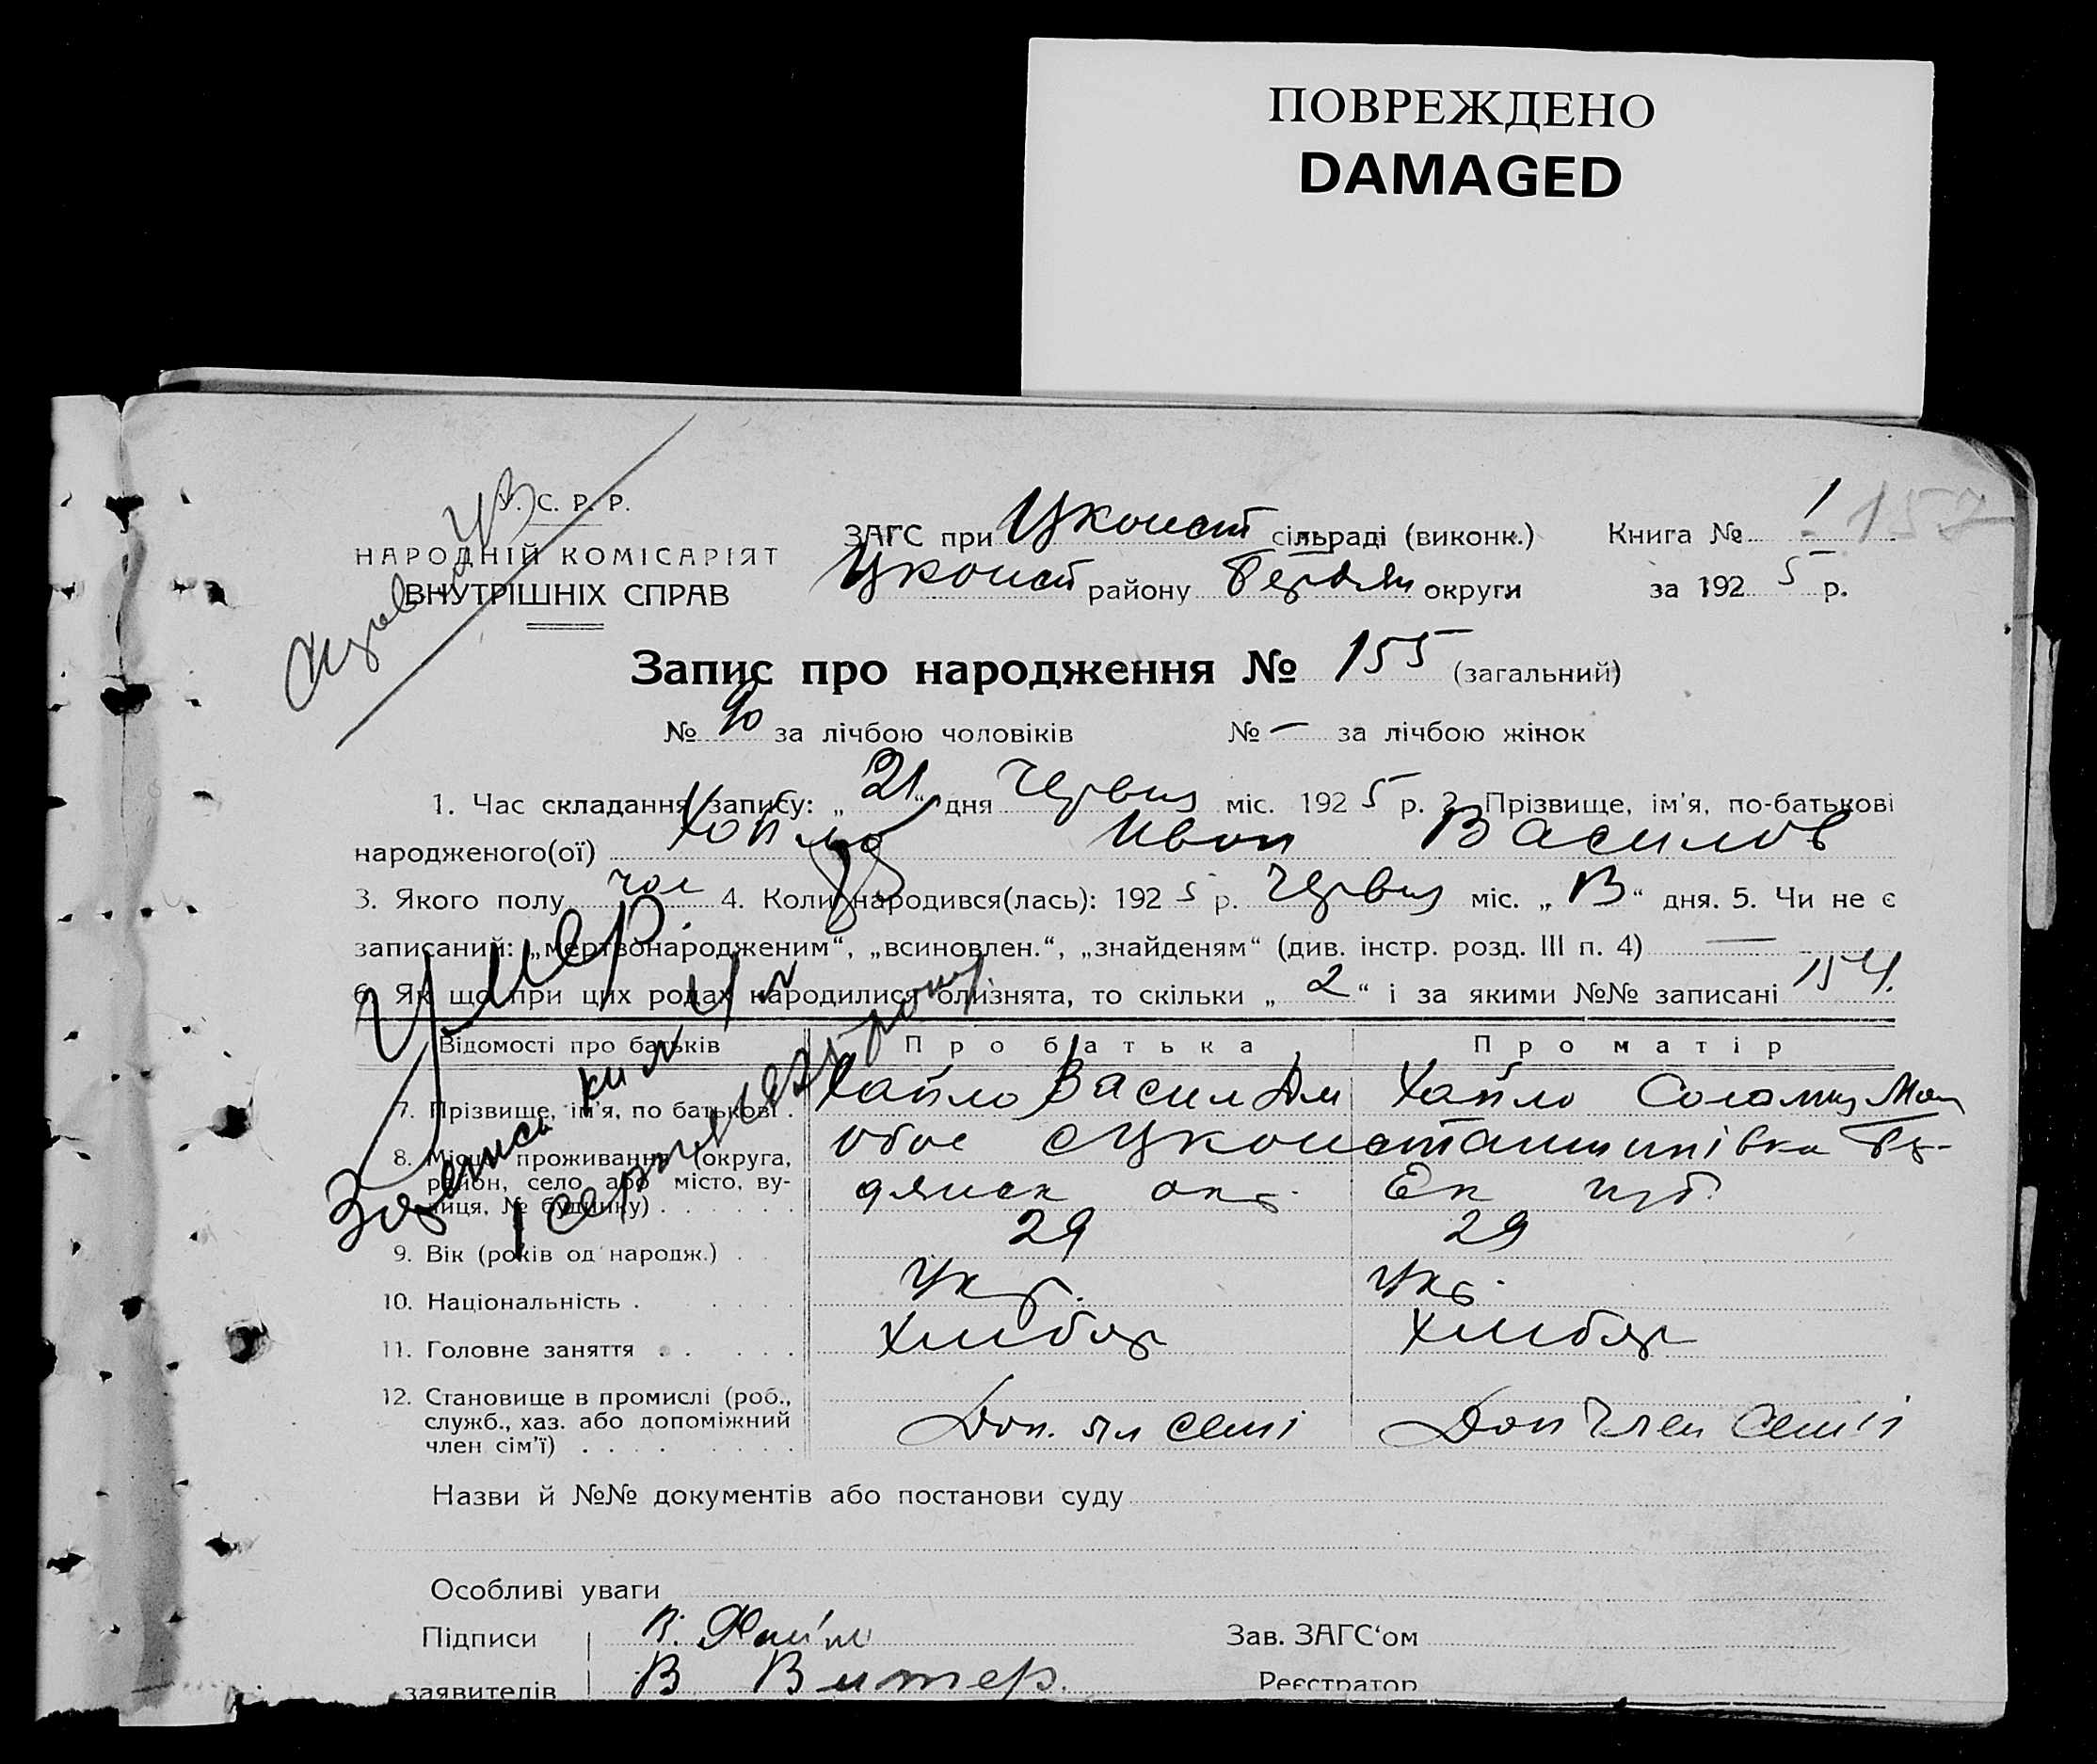 ПОВРЕЖДЕНО
DAMAGED
У. С. Р. Р.
НАРОДНІЙ КОМІСАРІЯТ
ВНУТРІШНІХ СПРАВ
ЗАГС при Цконст сільраді (виконк.) Книга № 1 152
Цконст району Бердян округи за 1925 р.
Запис про народження № 155 (загальний)
№ 90 за лічбою чоловіків № — за лічбою жінок
1. Час складання запису: „21“ дня Червня міс. 1925 р. 2. Прізвище, ім'я, по-батькові
народженого(ої) Хайло Иван Василів
3. Якого полу чол 4. Коли народився(лась): 1925 р. Червня міс. „ “ дня. 5. Чи не є
записаний: „мертвонародженим“, „всиновлен.“, „знайденям“ (див. інстр. розд. III п. 4) —
6. Як що при цих родах народилися близнята, то скільки „2“ і за якими №№ записані 154.
Умер.
Відомості про батьків Про батька Про матір
7. Прізвище, ім'я, по батькові . Хайло Васил Дм Хайло
8. Місце проживання (округа, район, село або місто, вулиця, № будинку) . . . . . . обоє
9. Вік (років од народж.) . 29 29
10. Національність . . . . . Укр. Укр.
11. Головне заняття . . . . . Хлибор Хлибор
12. Становище в промислі (роб.,
служб., хаз. або допоміжний
член сім'ї) . . . . . . . Доп. чл семі Доп член семіі
Назви й №№ документів або постанови суду
Особливі уваги
Підписи В. Хайло Зав. ЗАГС‘ом
заявителів В Витер. Реєстратор